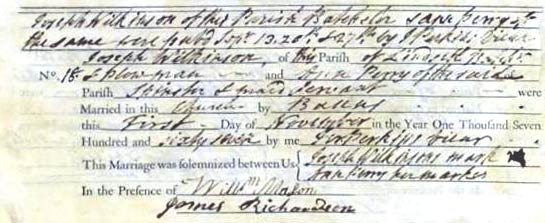 Joseph Wilkinson of this Parish Batchelor & Ann Perry of
the same were pub'd Sepr 13. 20th & 27th by J Perkins Vicar
Joseph Wilkinson, of this Parish of
No. 18 Plowman and Ann Perry of the same
Parish Spinster & maid Servant were
Married in this Church by Banns
this First Day of November in the Year One Thousand Seven
Hundred and sixty seven by me Perkins Vicar
This Marriage was solemnized between Us Joseph Wilkinsons mark
Ann Perry her mark
In the Presence of Willm Mason
James Richardson